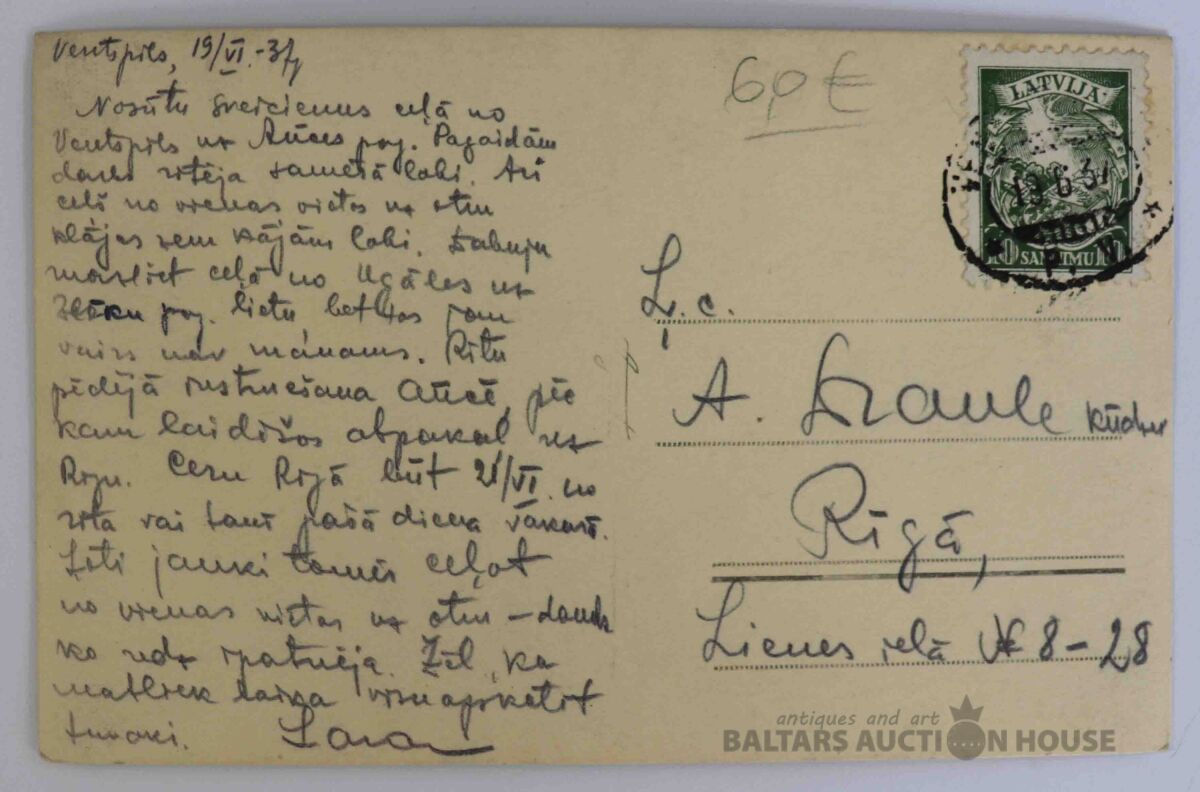 Ventspils, 19/VI.-37
Nosūtu sveicienus ceļā no
Ventspils uz Auces pag. Pagaidām
darbs ritēja samērā labi. Arī
ceļš no vienas vietas uz otru
klājas zem kājām labi. Dabuju
mazliet ceļā no Ugāles uz
Zlēku pag. lietu, bet tas jau
vairs nav manāms. Rītu
pēdējā Aucē, pēc
kam laidīšos atpakaļ uz
Rīgu. Ceru Rīgā būt 21/VI. no
rīta vai tani pašā diena vakarā.
Ļoti jauki tomēr ceļot
no vienas vietas uz otru – daudz
ko redz īpatnēja. Žēl, ka
neatliek laika visu apskatīt
tuvāki.
60 €
LATVIJA
10 SANTIMU 10
19 6 37
Ļ. c.
A. kundze
Rīgā,
Lienes ielā № 8-28
antiques and art
BALTARS AUCTION HOUSE